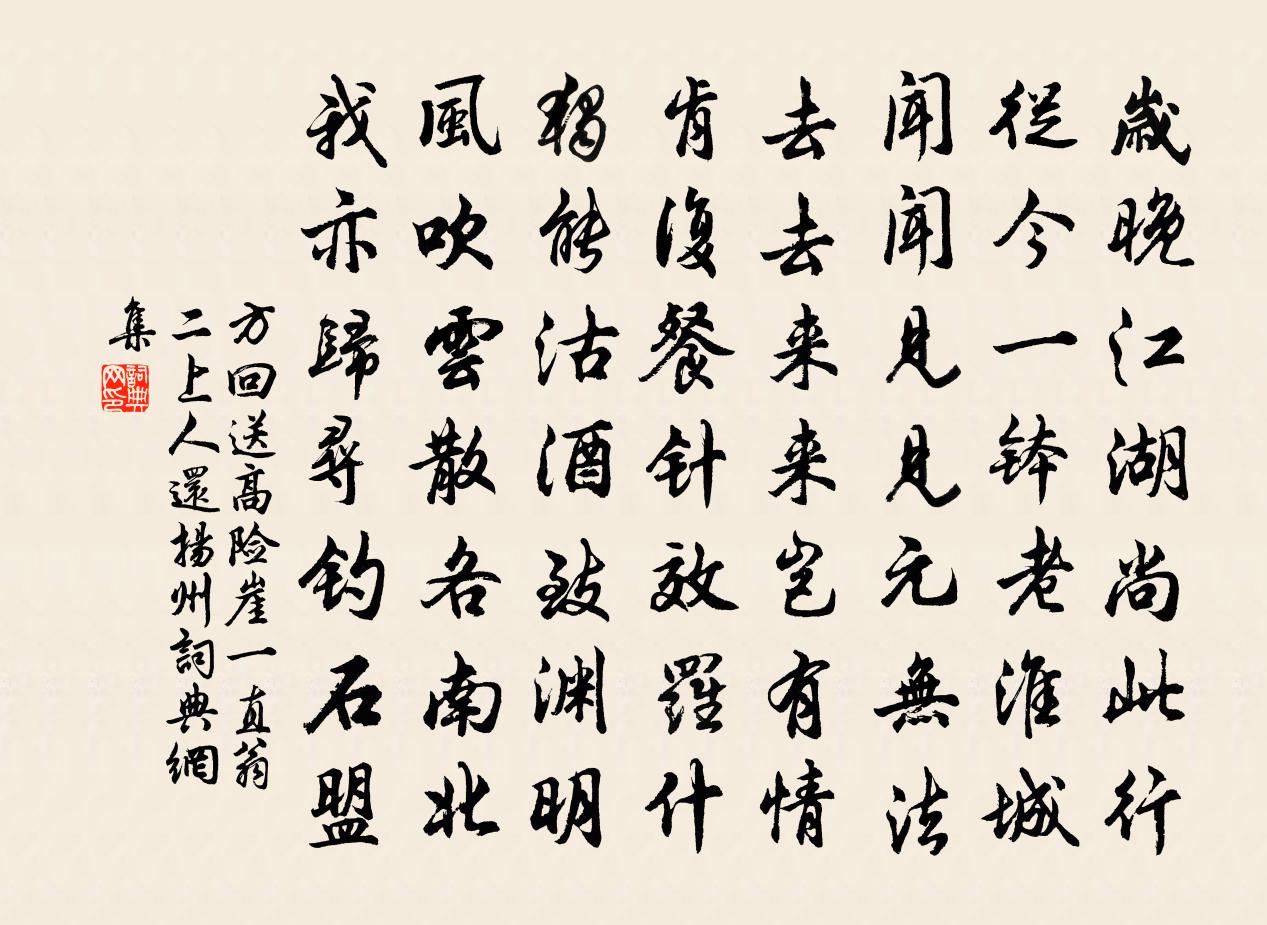 歲晚江湖尚此行
從今一钵老淮城
聞聞見見元無法
去去来来豈有情
肯復餐针效羅什
獨能沽酒致渊明
風吹雲散各南北
我亦歸尋钓石盟
方回送高险崖一直翁
二上人還揚州詞典網
集
詞典
网印